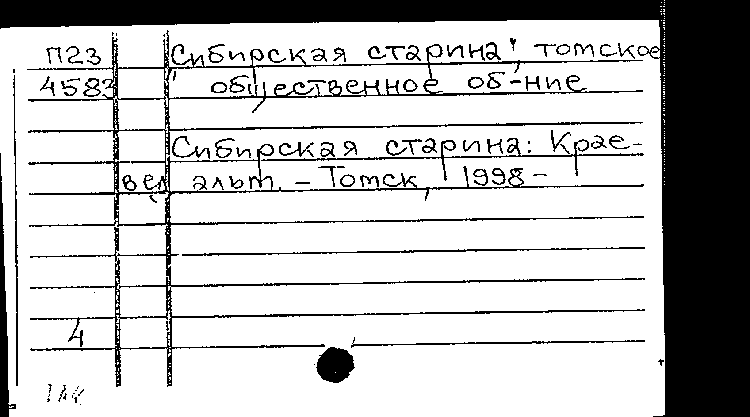 П23 „Сибирская старина", томское
4583 общественное об-ние
Сибирская старина: Крае-
вед. альм. – Томск, 1998 –
4